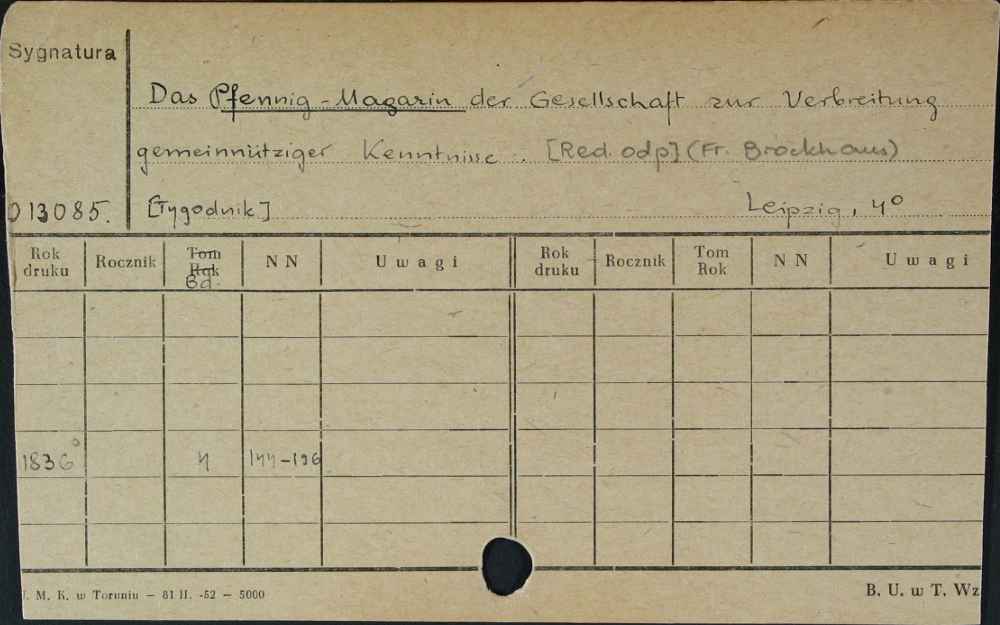 Sygnatura
Das Pfennig-Magazin der Gesellschaft zur Verbreitung
gemeinnütziger Kenntnisse. [Red. odp] (Fr. Brockhaus)
013085. [Tygodnik] Leipzig, 4°
Rok druku Rocznik Tom Rok Bd. NN Uwagi Rok druku Rocznik Tom Rok NN Uwagi
1836 4 144-196
. M. K. w Toruniu — 81 II. -52 — 5000 B. U. w T. Wz